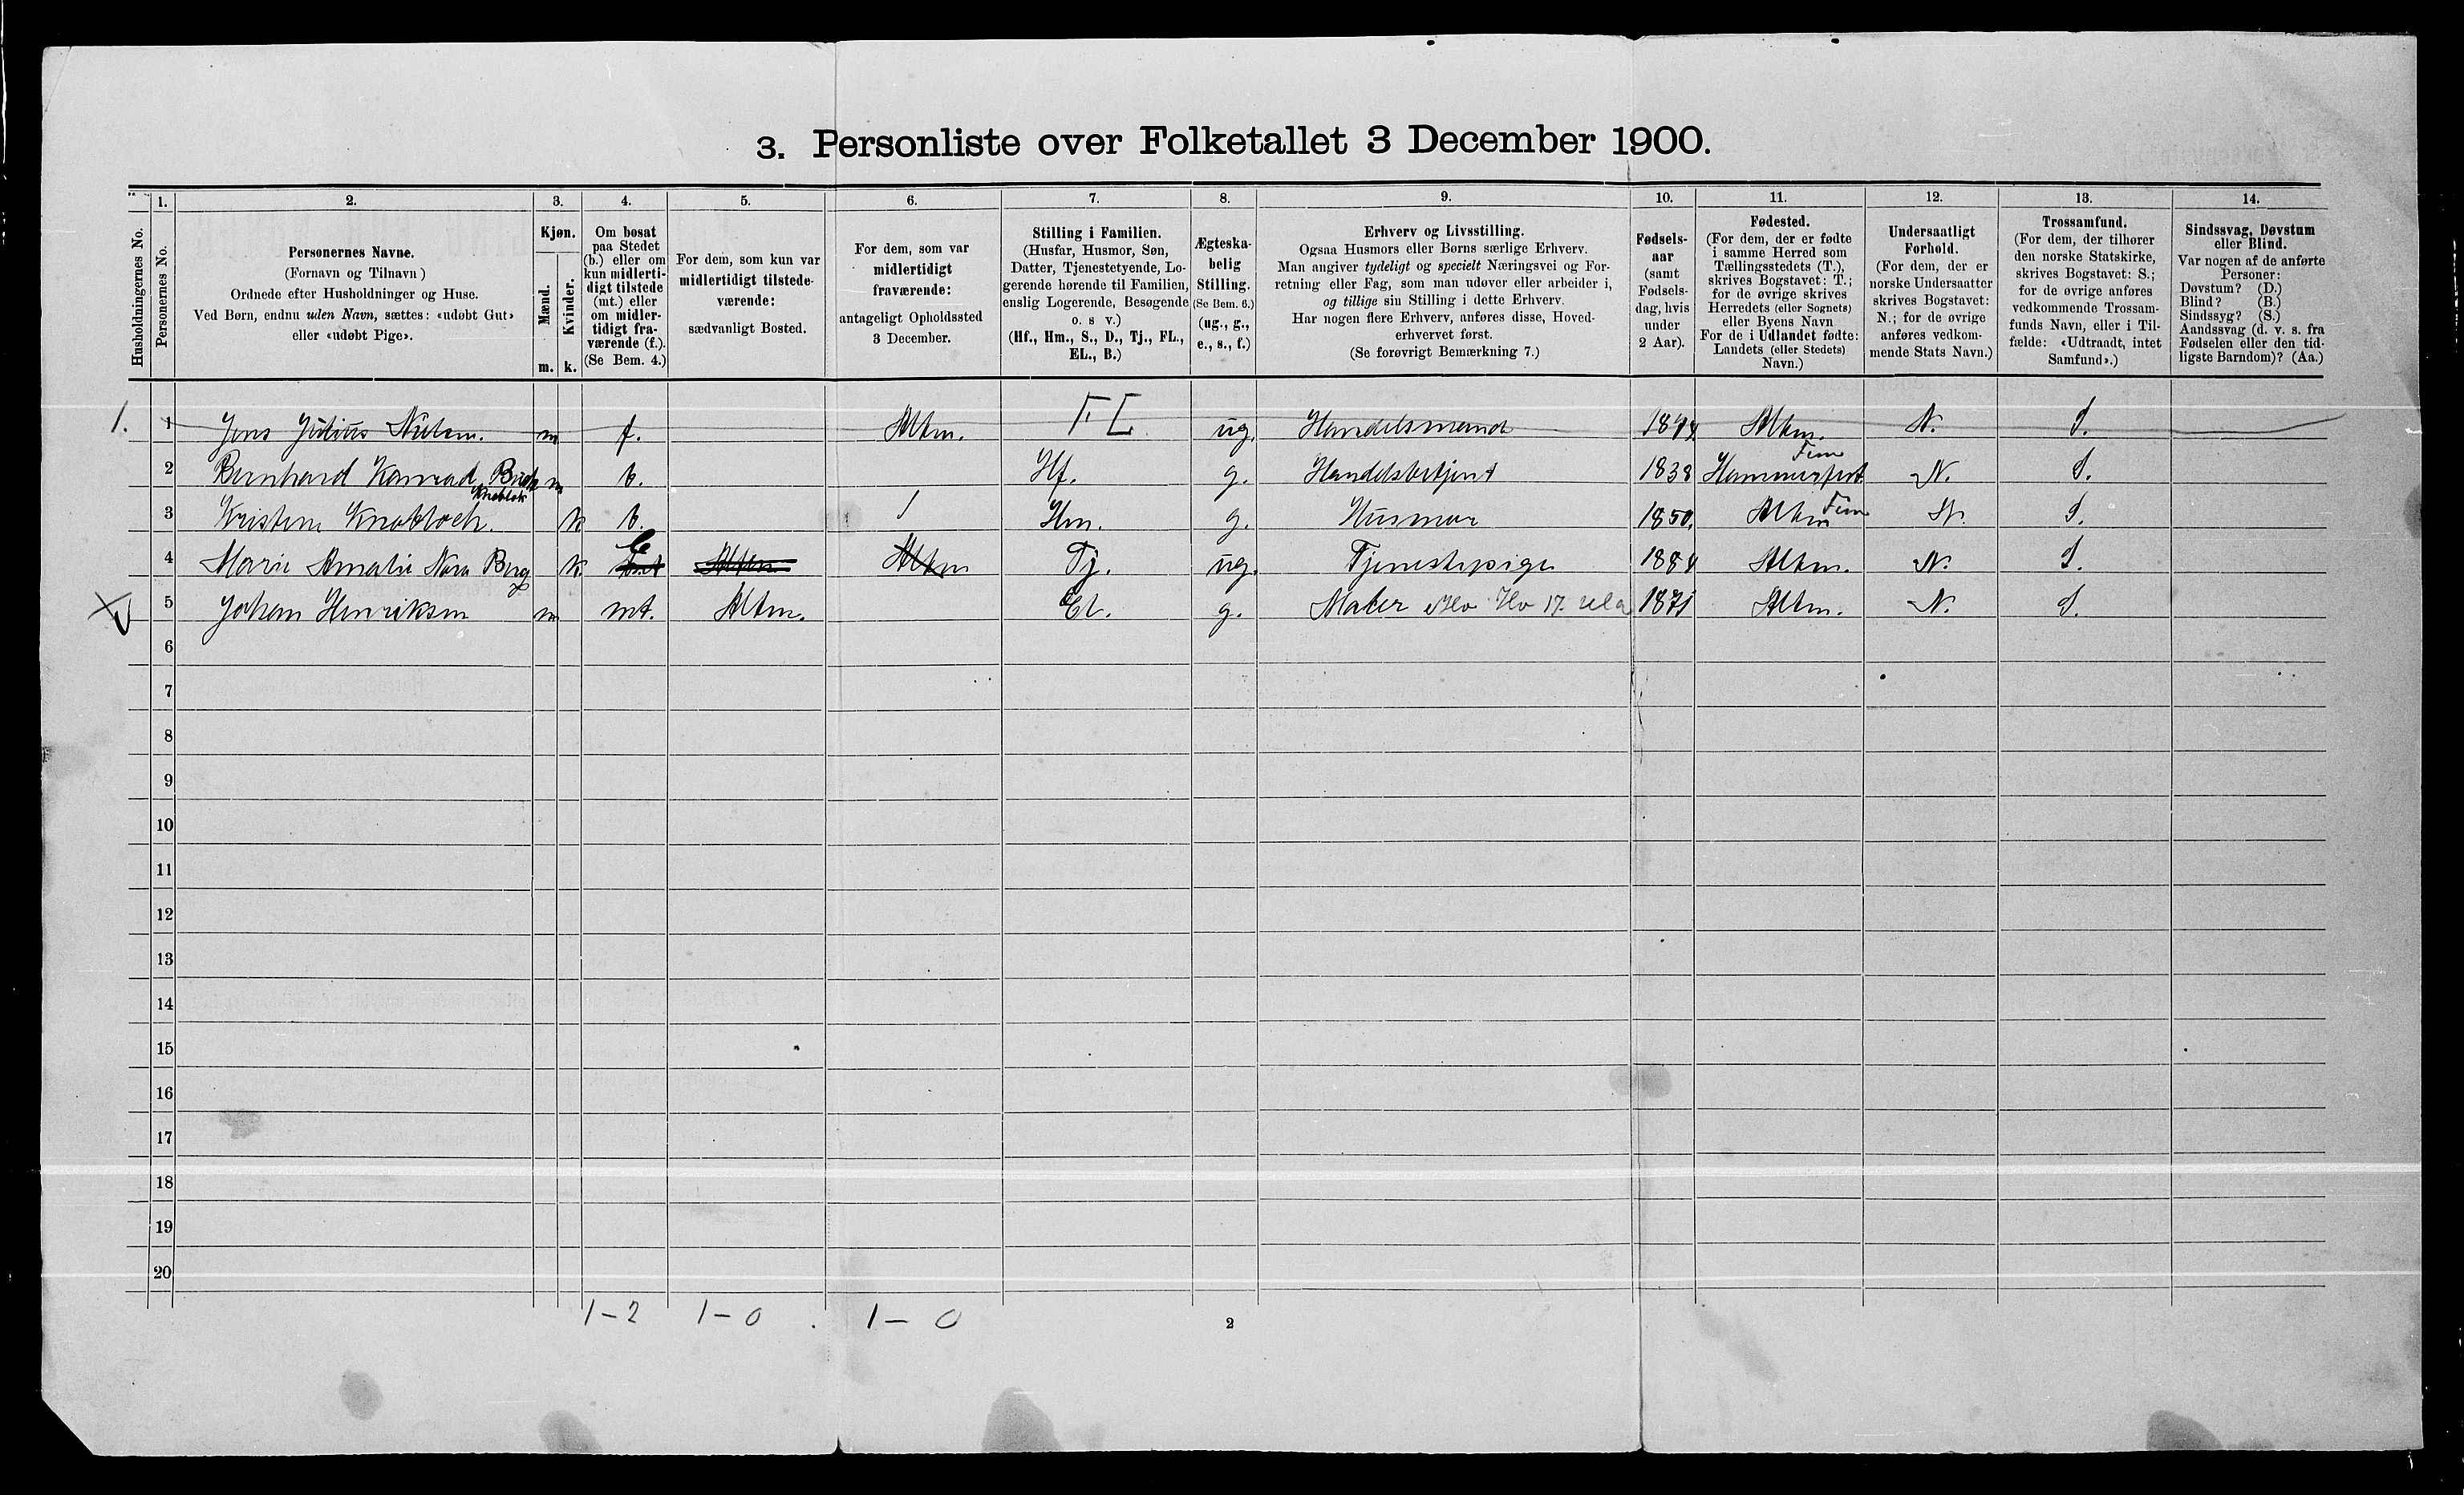 3. Personliste over Folketallet 3 December 1900.
1. 2. 3. 4. 5. 6. 7. 8. 9. 10. 11. 12. 13. 14.
Husholdningernes No.
Personernes No.
Personernes Navne.
(Fornavn og Tilnavn)
Ordnede efter Husholdninger og Huse.
Ved Børn, endnu uden Navn, sættes: «udøbt Gut»
eller «udøbt Pige».
Kjøn.
Mænd.
Kvinder.
m. k.
Om bosat
paa Stedet
(b.) eller om
kun midlerti-
digt tilstede
(mt.) eller
om midler-
tidigt fra-
værende (f.).
(Se Bem. 4.)
For dem, som kun var
midlertidigt tilstede-
værende:
sædvanligt Bosted.
For dem, som var
midlertidigt
fraværende:
antageligt Opholdssted
3 December.
Stilling i Familien.
(Husfar, Husmor, Søn,
Datter, Tjenestetyende, Lo-
gerende hørende til Familien,
enslig Logerende, Besøgende
o. s v.)
(Hf., Hm., S., D., Tj., FL.,
EL., B.)
Ægteska-
belig
Stilling.
(Se Bem. 6.)
(ug., g.,
e., s., f.)
Erhverv og Livsstilling.
Ogsaa Husmors eller Børns særlige Erhverv.
Man angiver tydeligt og specielt Næringsvei og For-
retning eller Fag, som man udøver eller arbeider i,
og tillige sin Stilling i dette Erhverv.
Har nogen flere Erhverv, anføres disse, Hoved-
erhvervet først.
(Se forøvrigt Bemærkning 7.)
Fødsels-
aar
(samt
Fødsels-
dag, hvis
under
2 Aar).
Fødested.
(For dem, der er fødte
i samme Herred som
Tællingsstedets (T.),
skrives Bogstavet: T.;
for de øvrige skrives
Herredets (eller Sognets)
eller Byens Navn
For de i Udlandet fødte:
Landets (eller Stedets)
Navn.)
Undersaatligt
Forhold.
(For dem, der er
norske Undersaatter
skrives Bogstavet:
N.; for de øvrige
anføres vedkom-
mende Stats Navn.)
Trossamfund.
(For dem, der tilhører
den norske Statskirke,
skrives Bogstavet: S.;
for de øvrige anføres
vedkommende Trossam-
funds Navn, eller i Til-
fælde: «Udtraadt, intet
Samfund».)
Sindssvag, Døvstum
eller Blind.
Var nogen af de anførte
Personer:
Døvstum? (D.)
Blind? (B.)
Sindssyg? (S.)
Aandssvag (d. v. s. fra
Fødselen eller den tid-
ligste Barndom)? (Aa.)
1. 1 Jens Julius Nielsen. m f. Alten. FL ug. Handelsmand Alten. N. S.
2 Bernhard Konrad Buch m b. Hf. g. Handelsbetjent 1838 Hammerfest Finm N. S.
Knoblok
3 Kristine Knobloch. k b. / Hm. g. Husmor 1850. Alten Finm N. S.
4 Marie Amalie Nora Berg k. b Alten Alten Tj. ug. Tjenestepige 1884 Alten. N. S.
5 Johan Henriksen m mt. Alten. El. g. Maler 1871 Alten. N. S.
6
7
8
9
10
11
12
13
14
15
16
17
18
19
20
1–2 1–0 1–0
2